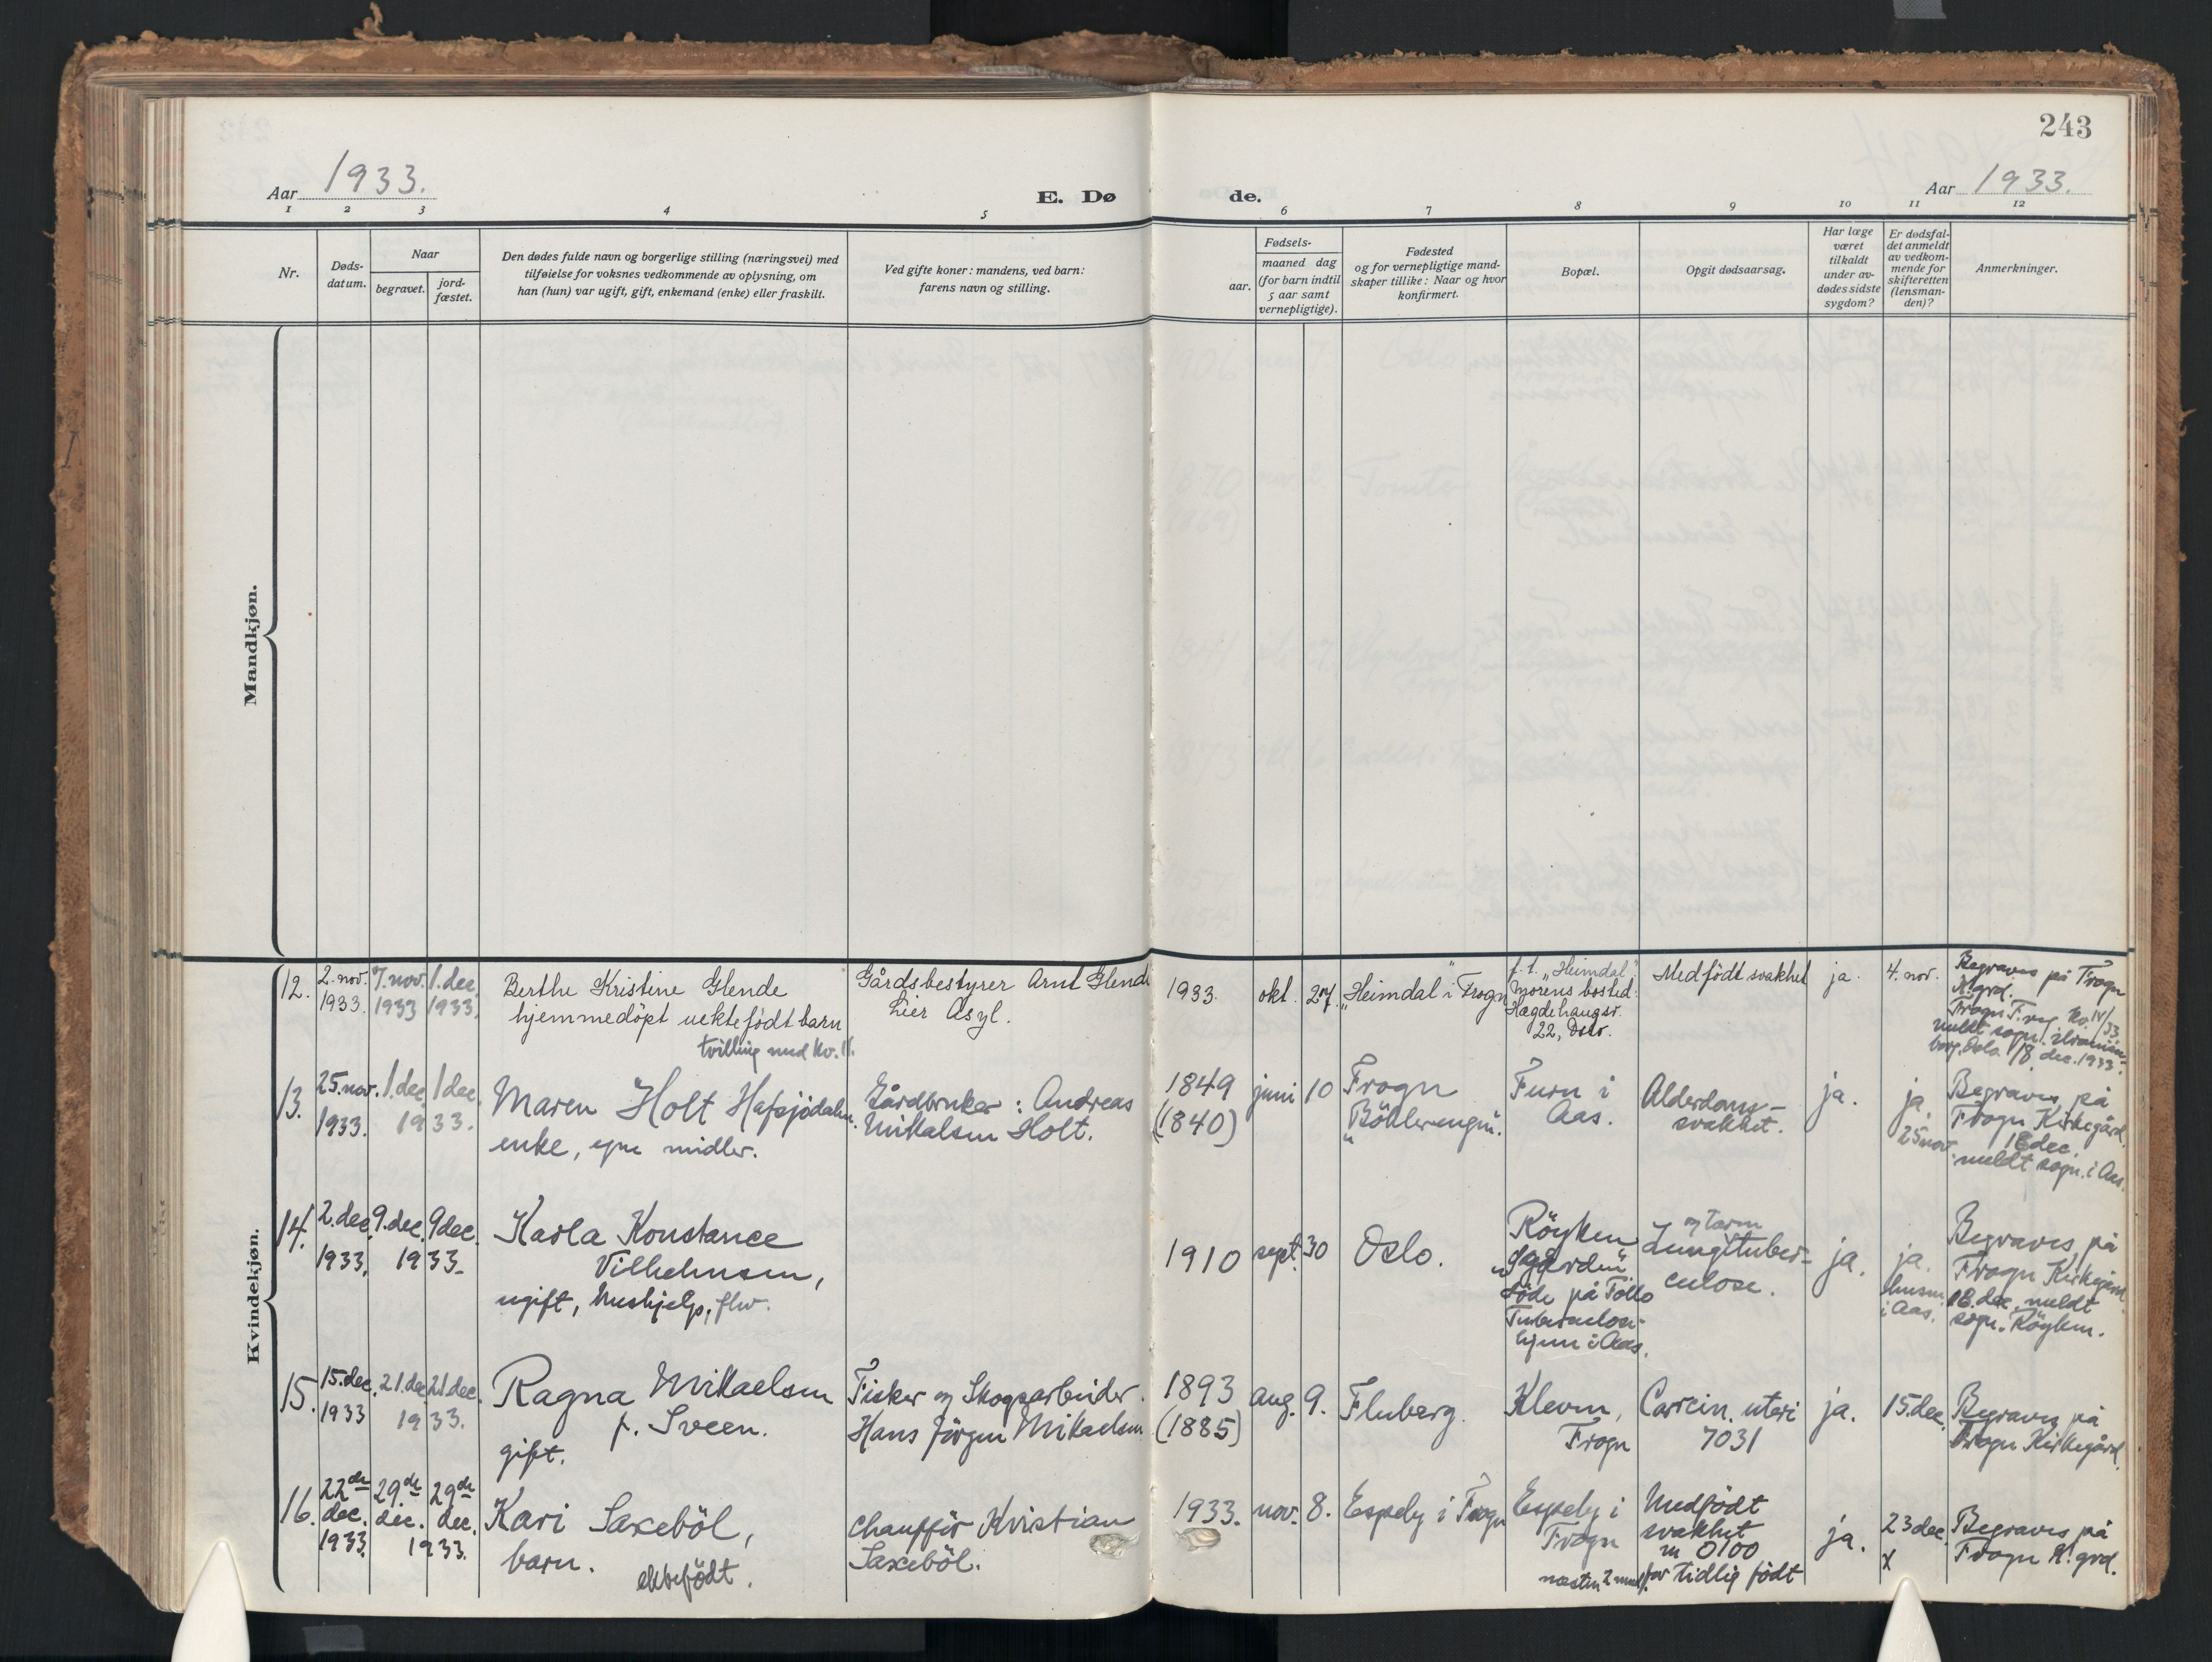 243
Aar 1933.
E. Dø
de.
Aar 1933.
1 2 3 4 5 6 7 8 9 10 11 12
Nr.
Døds-
datum.
Naar
begravet.
jord-
fæstet.
Den dødes fulde navn og borgerlige stilling (næringsvei) med
tilføielse for voksnes vedkommende av oplysning, om
han (hun) var ugift, gift, enkemand (enke) eller fraskilt.
Ved gifte koner: mandens, ved barn:
farens navn og stilling.
Fødsels-
aar.
maaned dag
(for barn indtil
5 aar samt
vernepligtige).
Fødested
og for vernepligtige mand-
skaper tillike: Naar og hvor
konfirmert.
Bopæl.
Opgit dødsaarsag.
Har læge
været
tilkaldt
under av-
dødes sidste
sygdom?
Er dødsfal-
det anmeldt
av vedkom-
mende for
skifteretten
(lensman-
den)?
Anmerkninger.
Mandkjøn.
Kvindekjøn.
12.
2. nov.
1933.
7. nov.
1933
1. dec.
1933.
Berthe Kristine Glende
hjemmedöpt uektefödt barn
tvilling med kv.
Gårdsbestyrer Arnt Glende
Lier Asyl.
1933. okt. 27.
"Heimdal" i Frogn
f. t. "Heimdal"
Morens bosted:
Hægdehaugsv.
22, Oslo.
Medfödt svakhet
ja.
4. nov.
Begraves på Frogn
K.grd.
Frogn F.reg. kv. IV/33
meldt sogn.
borg. Oslo 18. dec. 1933.
13.
25. nov.
1933.
1. dec. 1 dec.
1933.
Maren Holt Hafsjödalen.
enke, egne midler.
Gårdbruker: Andreas
Mikalsen Holt.
1849
(1840)
juni 10
Frogn
"Böhlerengen".
Furn i
Aas.
Alderdoms-
svakhet.
ja.
ja.
25 nov.
Begraves på
Frogn Kirkegård.
18 dec.
meldt sogn. i Aas.
14.
2. dec.
1933.
9. dec. 9 dec.
1933.
Karla Konstance
Vilhelmsen,
ugift, hushjelp,
1910 sept. 30
Oslo.
Röyken
döde på Follo
Tuberculose-
hjem i Aas.
og tarm
Lungetuber-
culose.
ja.
ja.
i Aas.
Begraves på
Frogn Kirkegård
18. dec. meldt
sogn. Röyken.
15.
15. dec.
1933
21. dec. 21. dec.
1933.
Ragna Mikaelsen
f. Sveen.
gift.
Fisker og Skogsarbeider.
Hans Jörgen Mikaelsen
1893
(1885)
aug. 9.
Fluberg.
Kleven,
Frogn
Carcin. uteri
7031
ja.
15. dec.
Begraves på
Frogn Kirkegård.
16.
22de
dec.
1933.
29.de
dec.
29de
dec.
1933.
Kari Saxeböl,
barn.
ektefödt.
Chaufför Kristian
Saxeböl.
1933. nov. 8.
Espeby i Frogn
Espeby i
Frogn
Medfödt
svakhet
m 0100
næsten 2 mnd. for tidlig födt
ja.
23 dec.
x
Begraves på
Frogn K.grd.